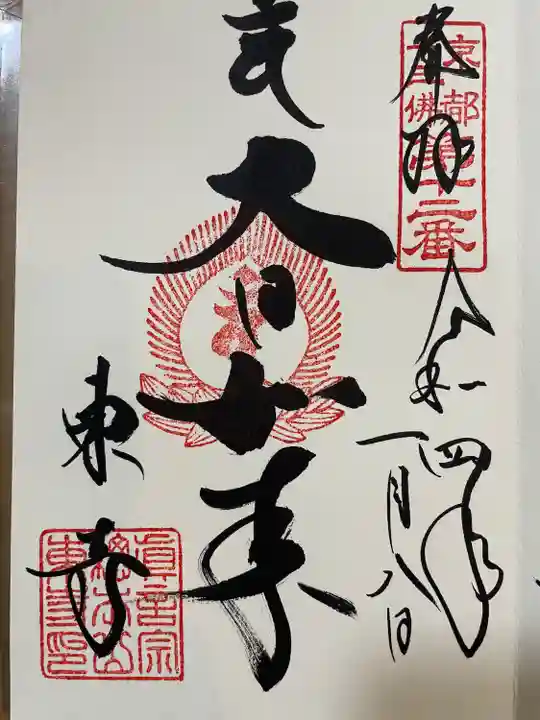 奉拝
京都
十三佛
第十二番
令和四年
一月八日
大日如来
東寺
真言宗
總本山
東寺印